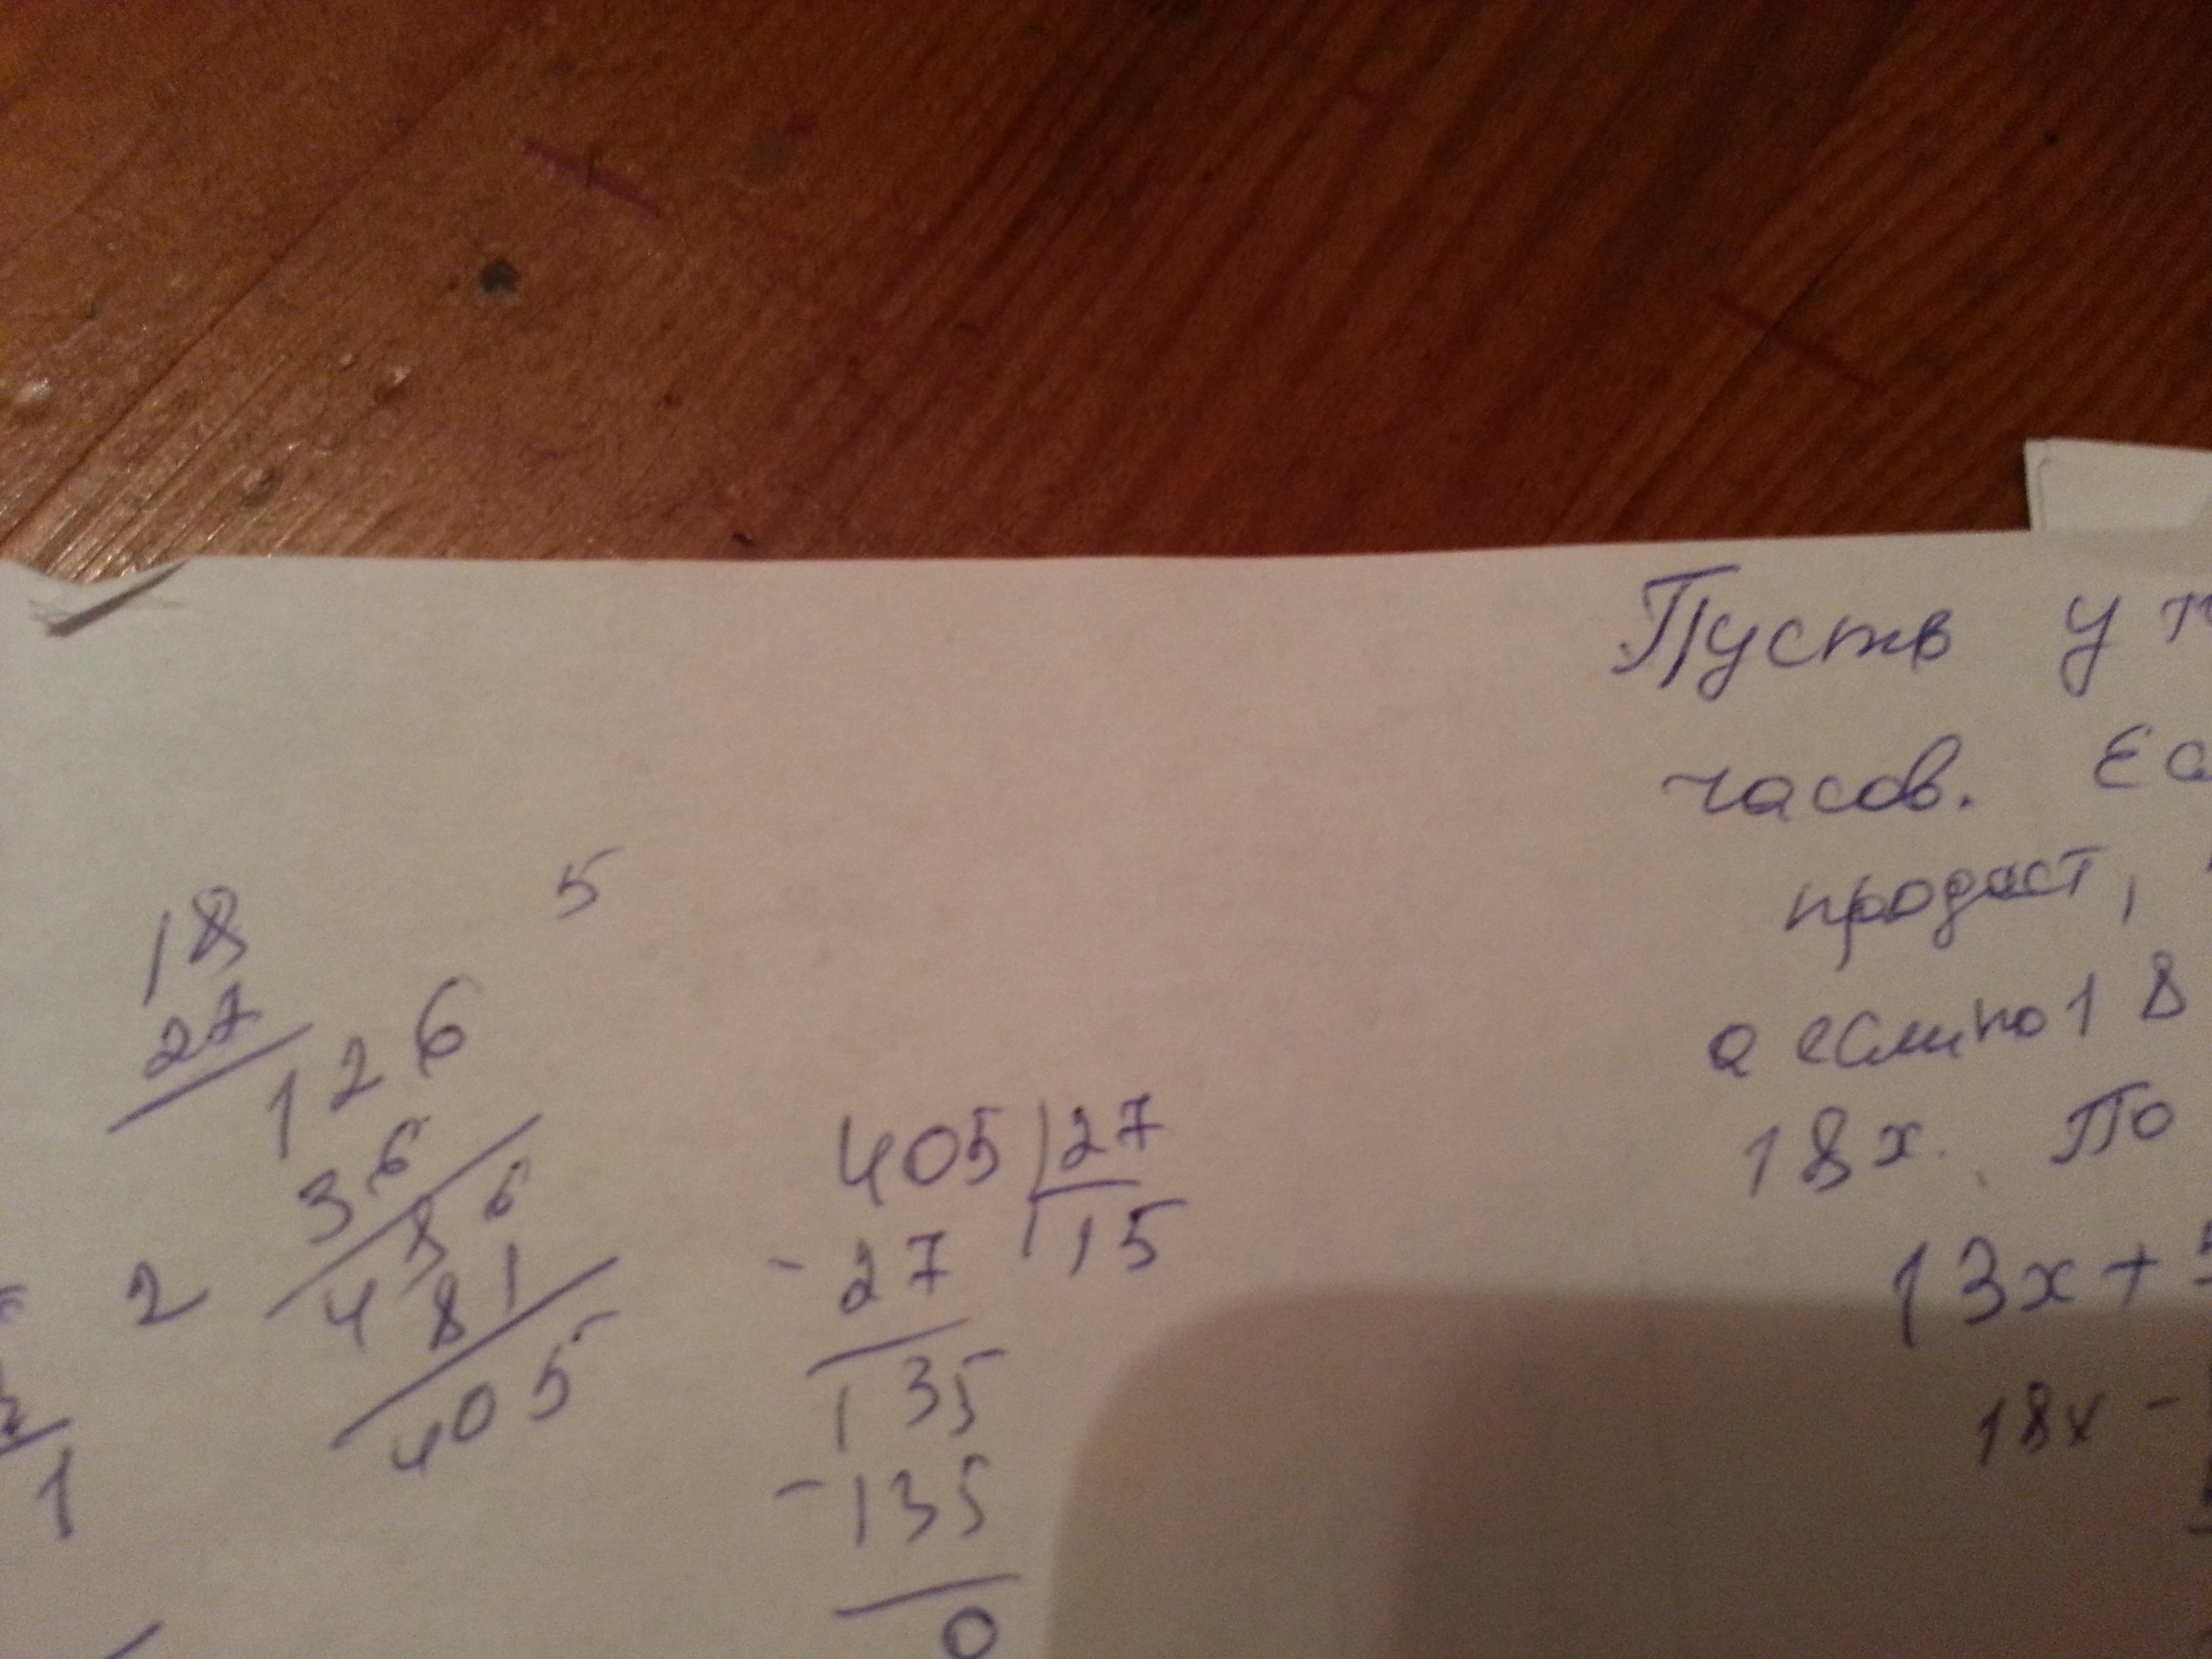 5
18
27
126
36
486
81
405
2
1
405 27
- 27 15
135
- 135
0
Пусть у
часов. Ес
продаст,
а если по 18
18х. По
13х +
18х -